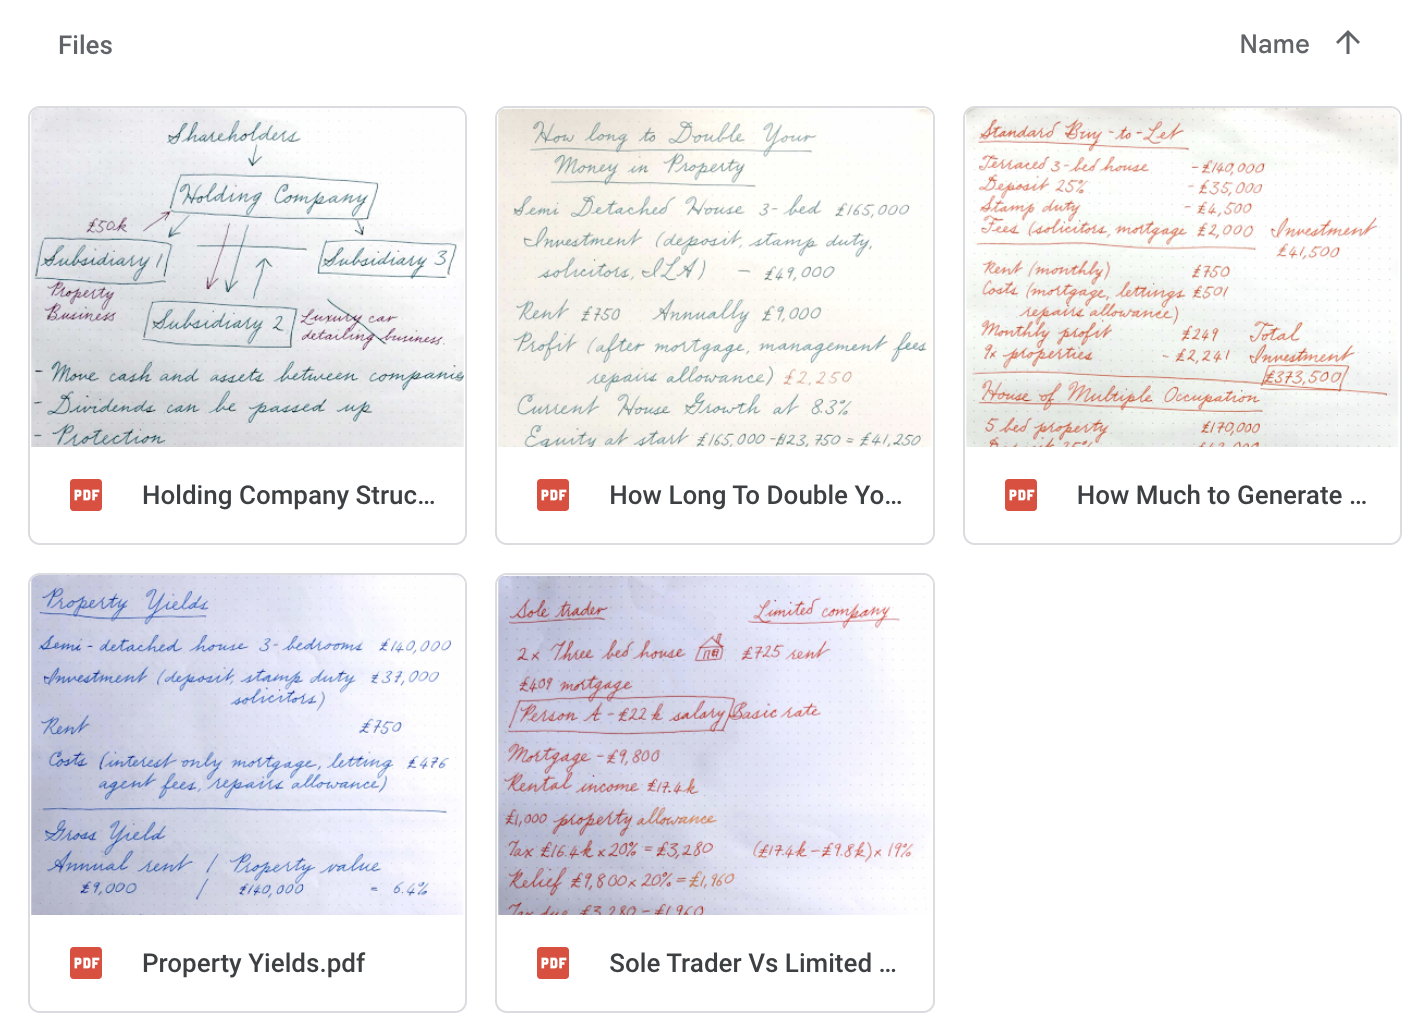 Files
Name
Shareholders
Holding Company
£50k
Subsidiary 1
Subsidiary 3
Property
Business
Subsidiary 2
Luxury car
detailing business.
- Move cash and assets between companies
- Dividends can be passed up
- Protection
Holding Company Struc...
How long to Double Your
Money in Property
Semi Detached House 3-bed £165,000
Investment (deposit, stamp duty,
solicitors, ILA) - £49,000
Rent £750 Annually £9,000
Profit (after mortgage, management fees
repairs allowance) £2,250
Current House Growth at 8.3%
Equity at start £165,000 - £123,750 = £41,250
How Long To Double Yo...
Standard Buy-to-Let
Terraced 3-bed house - £140,000
Deposit 25% - £35,000
Stamp duty - £4,500
Fees (solicitors, mortgage £2,000 Investment
£41,500
Rent (monthly) £750
Costs (mortgage, lettings £501
repairs allowance)
Monthly profit £249 Total
9x properties - £2,241 Investment
£373,500
House of Multiple Occupation
5 bed property £170,000
How Much to Generate ...
Property Yields
Semi-detached house 3-bedrooms £140,000
Investment (deposit, stamp duty £37,000
solicitors)
Rent £750
Costs (interest only mortgage, letting £476
agent fees, repairs allowance)
Gross Yield
Annual rent / Property value
£9,000 / £140,000 = 6.4%
Property Yields.pdf
Sole trader Limited company
2x Three bed house £725 rent
£409 mortgage
Person A - £22k salary Basic rate
Mortgage - £9,800
Rental income £17.4k
£1,000 property allowance
Tax £16.4k x 20% = £3,280 (£17.4k - £9.8k) x 19%
Relief £9,800 x 20% = £1,960
Tax due £3,280 - £1,960
Sole Trader Vs Limited ...